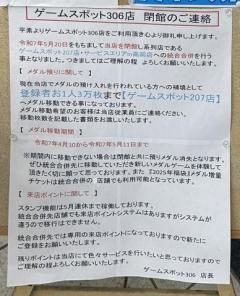 ゲームスポット306店 閉館のご連絡
平素よりゲームスポット306店をご利用頂き心より御礼申し上げます。
令和7年5月20日をもちまして当店を閉館し系列店である
ゲームスポット207店・サービスエリアin高岡店への統合合併を行う
事となりました。つきましてはご理解の程 よろしくお願いいたします。
【 メダル預りに関して 】
現在当店でメダルの預け入れを行われている方への補填として
登録者お1人3万枚まで【ゲームスポット207店】
へメダル移動できる事になっております。
メダル移動希望のお客様は当店従業員にご連絡ください。
移動枚数を記載した書類をお渡しいたします。
【 メダル移動期間 】
令和7年4月10から令和7年5月11日まで
※期間内に移動できない場合は閉館と共に預りメダル消失となります。
ぜひ統合合併先に移動していただき新しいメダルゲームを体験して
頂きたく切に願って思っております。また『2025年福袋』メダル増量
チケットは統合合併の 店舗でも利用可能となっています。
【 来店ポイントに関して 】
スタンプ機能は5月連休まで稼働しております。
統合合併先店舗でも来店ポイントシステムはありますがシステムが
違うので移行はできません。
統合合併先では専用の来店ポイントになっておりますので新たに
ご登録をお願いいたします。
残りポイントは当店にて色々サービスを行いたいと思っておりますので
ご理解の程よろしくお願いいたします。
ゲームスポット306 店長